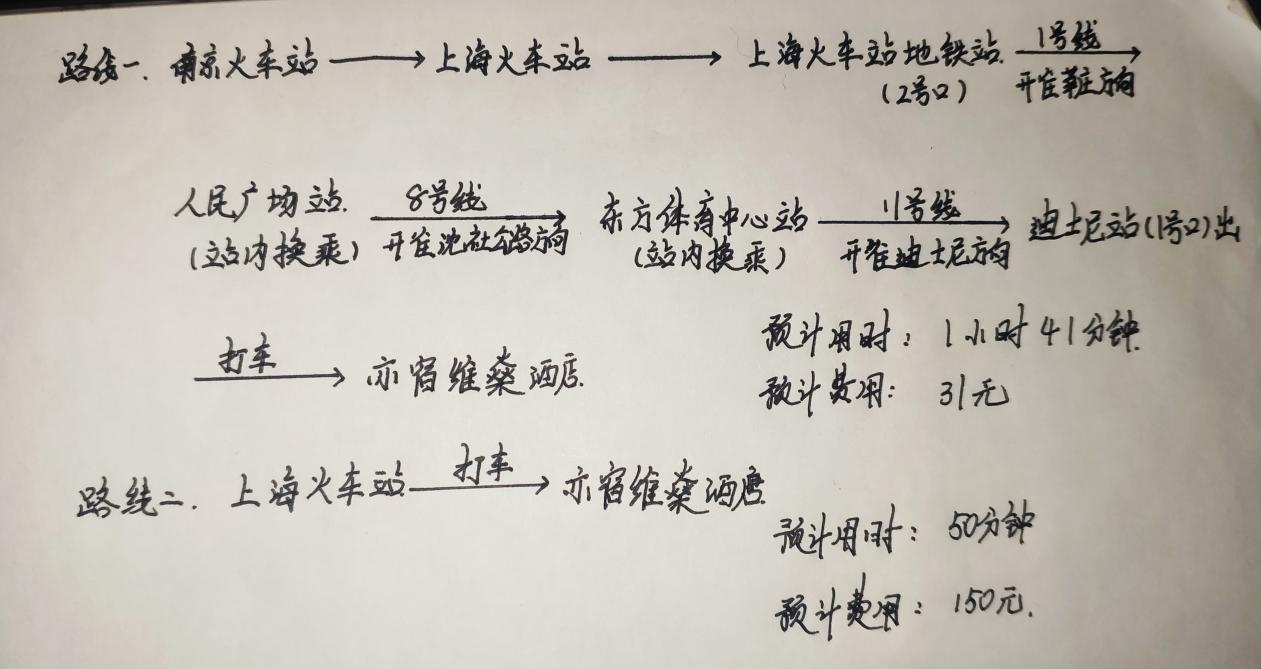 路线一. 南京火车站 → 上海火车站 → 上海火车站地铁站 1号线
(2号口) 开往莘庄方向
人民广场站 8号线 东方体育中心站 11号线 迪士尼站(1号口)出
(站内换乘) 开往沈社公路方向 (站内换乘) 开往迪士尼方向
打车 → 亦宿维燊酒店
预计用时: 1小时41分钟
预计费用: 31元
路线二. 上海火车站 打车 → 亦宿维燊酒店
预计用时: 50分钟
预计费用: 150元.